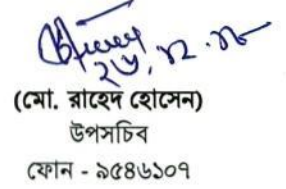 ২৬.১২.১৮
(মো. রাহেদ হোসেন)
উপসচিব
ফোন - ৯৫৪৬১০৭